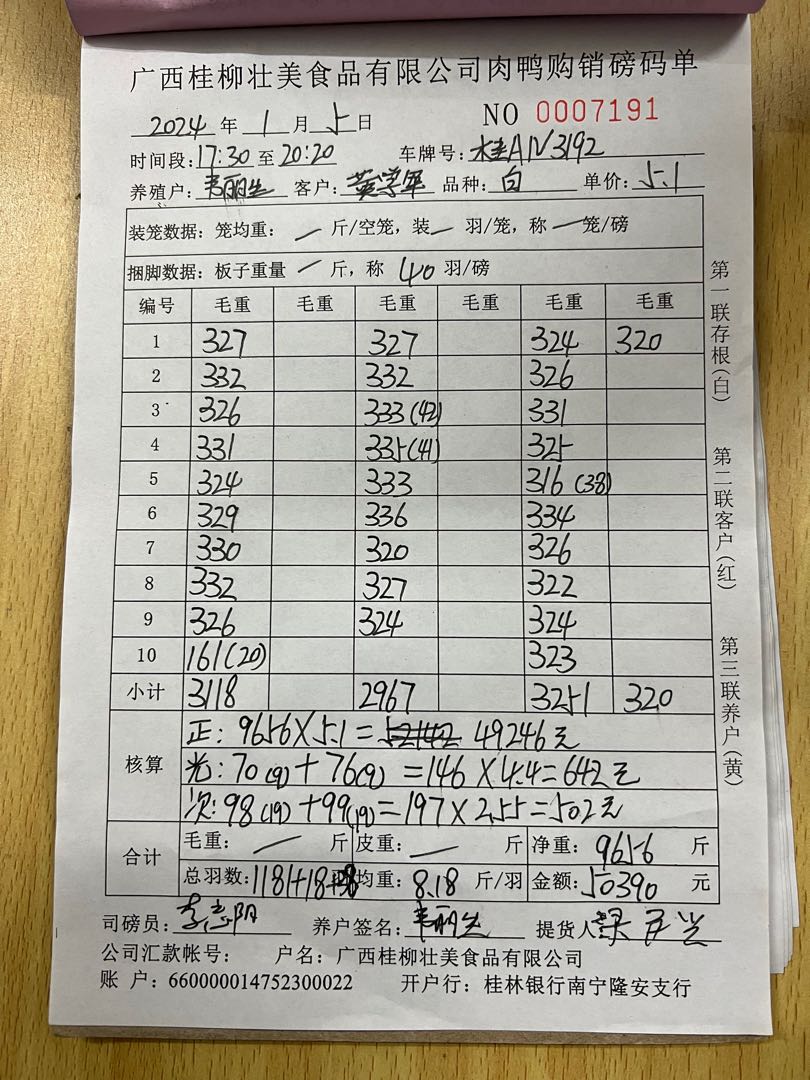 广西桂柳壮美食品有限公司肉鸭购销磅码单
2024 年 1 月 5 日 NO 0007191
时间段: 17:30 至 20:20 车牌号: 桂A1V3192
养殖户: 韦丽生 客户: 黄学军 品种: 白 单价: 5.1
装笼数据: 笼均重: — 斤/空笼, 装 — 羽/笼, 称 — 笼/磅
捆脚数据: 板子重量 — 斤, 称 40 羽/磅
编号 毛重 毛重 毛重 毛重 毛重 毛重
1 327 327 324 320
2 332 332 326
3 326 333(42) 331
4 331 335(41) 325
5 324 333 316(38)
6 329 336 334
7 330 320 326
8 332 327 322
9 326 324 324
10 161(20) 323
小计 3118 2967 3251 320
核算
正: 9656×5.1=52142 49246元
光: 70(9)+76(9)=146×4.4=642元
次: 98(19)+99(19)=197×2.55=502元
合计
毛重: — 斤 皮重: — 斤 净重: 9656 斤
总羽数: 1181+18+38 均重: 8.18 斤/羽 金额: 50390 元
司磅员: 李志阳 养户签名: 韦丽生 提货人
公司汇款帐号: 户名: 广西桂柳壮美食品有限公司
账 户: 660000014752300022 开户行: 桂林银行南宁隆安支行
第一联存根(白)
第二联客户(红)
第三联养户(黄)